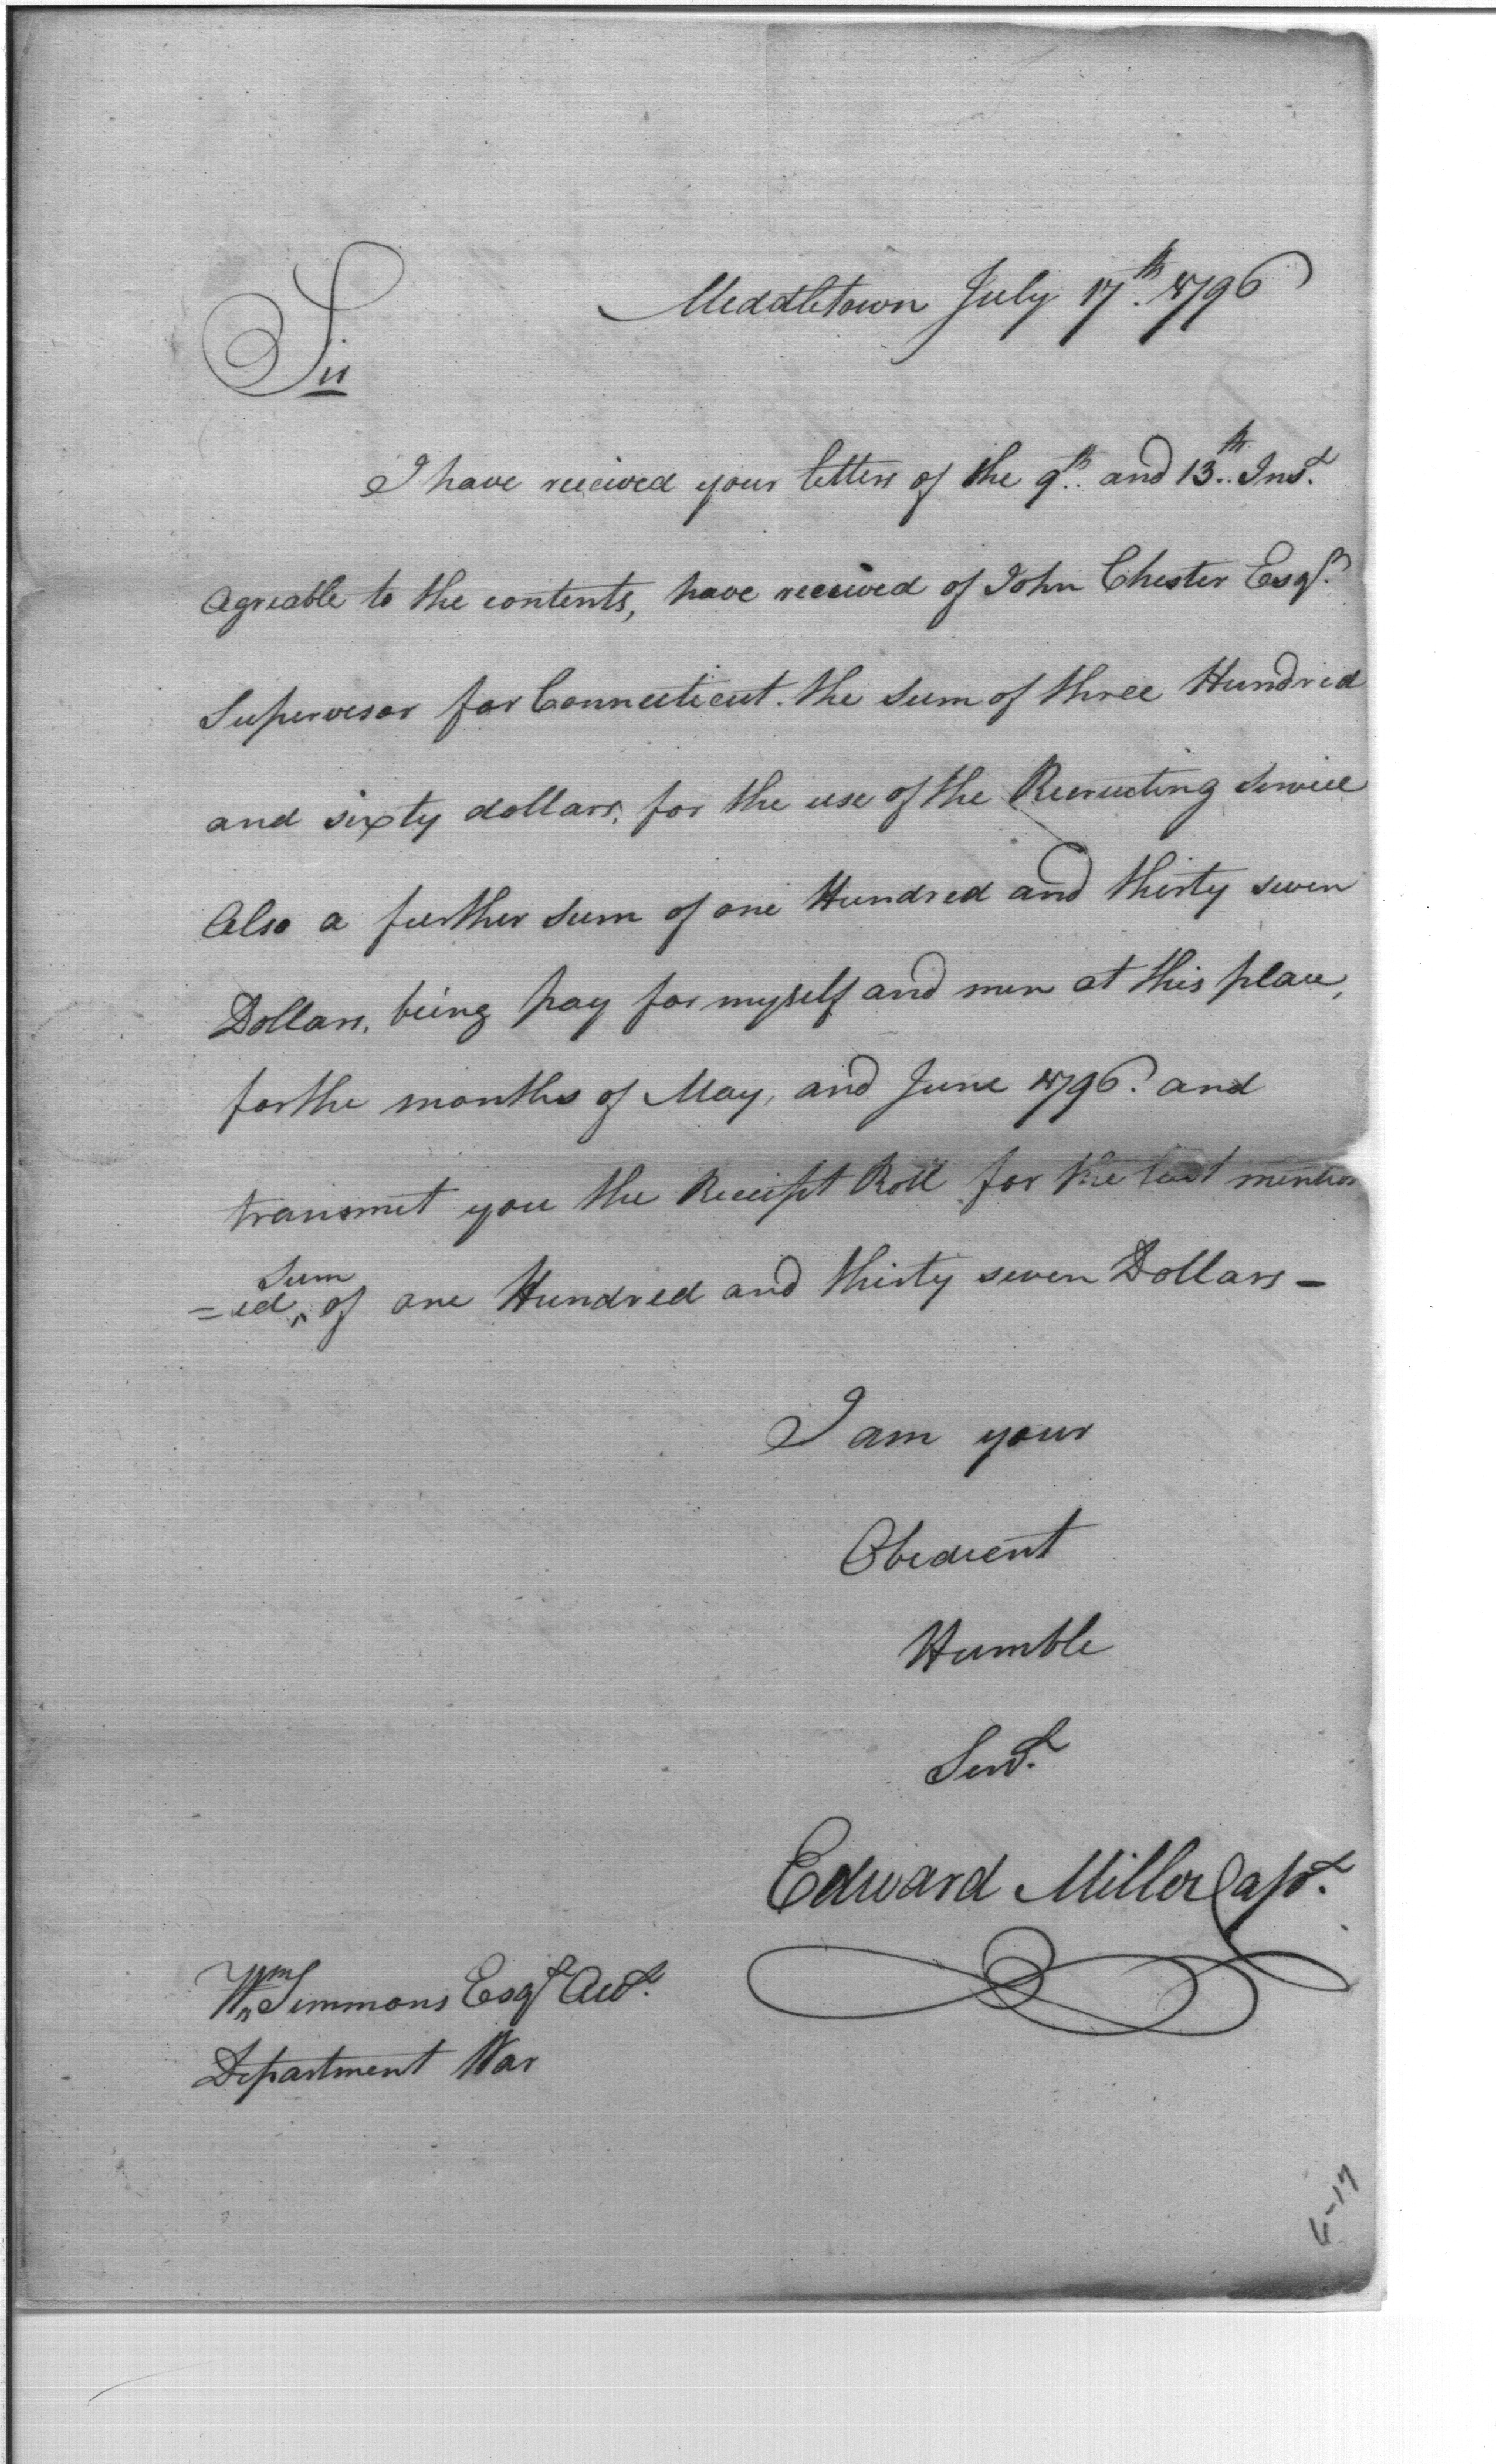 Middletown July 17th. 1796
Sir
I have received your letters of the 9th. and 13th. Inst.
Agreable to the contents, have received of John Chester Esqr.
Supervisor for Connecticut. the Sum of three Hundred
and sixty dollars, for the use of the Recruiting Service
Also a further Sum of one Hundred and thirty seven
Dollars, being pay for myself and men at this place,
for the months of May, and June 1796. and
transmit you the Receipt Roll for the last mention
=ed ^ Sum of one Hundred and thirty seven Dollars -
I am your
Obedient
Humble
Servt.
Edward Miller Capt.
Wm Simmons Esqr Acct.
Department War